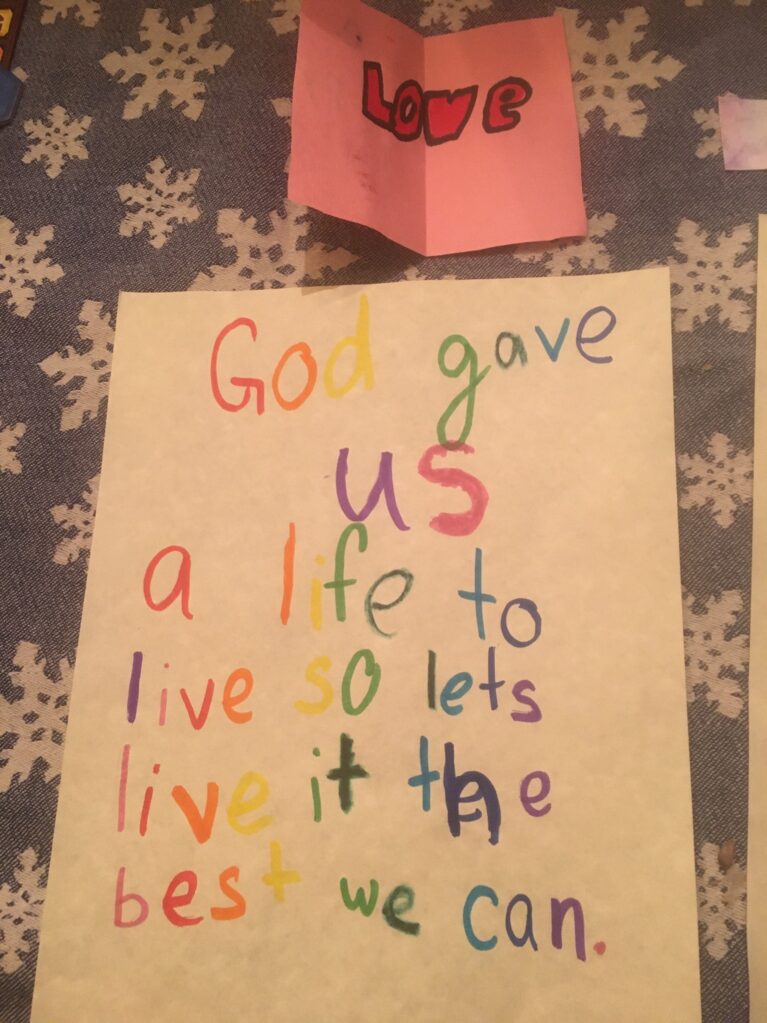 Love
God gave
us
a life to
live so lets
live it the
best we can.